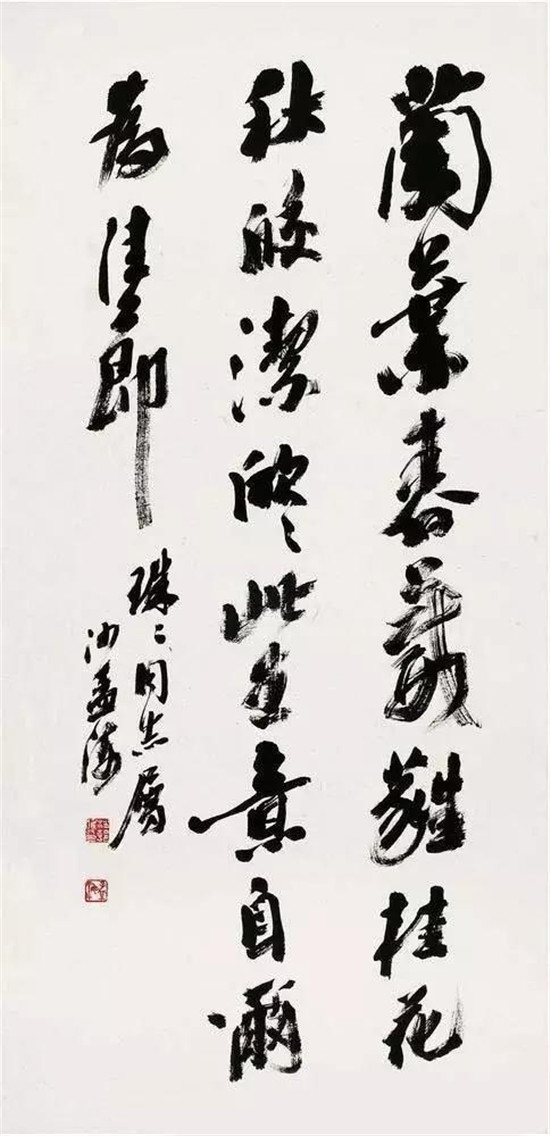 蘭葉春葳蕤桂花
秋皎潔欣〻此生意自爾
為佳即
珠〻同志屬
沙孟海